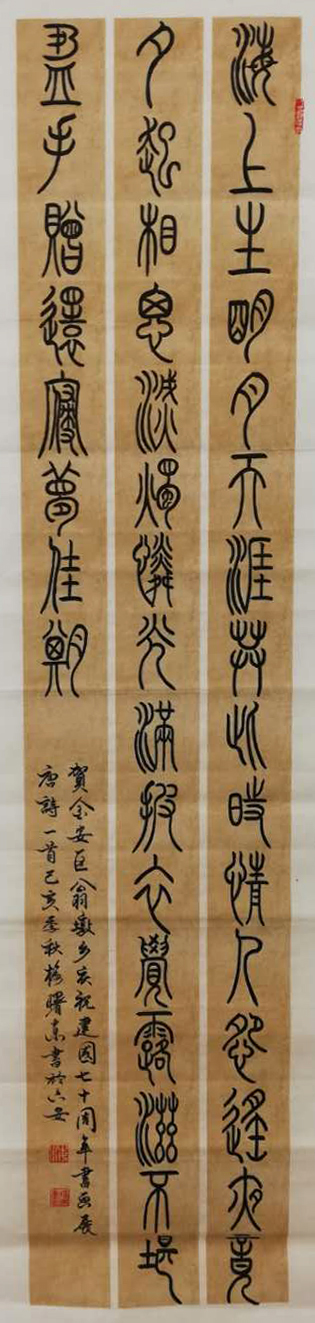 海上生明月天涯共此時情人怨遙夜竟
夕起相思滅燭憐光滿披衣覺露滋不堪
盈手贈還寢夢佳期
賀金安区翁墩乡庆祝建國七十周年書画展
唐詩一首己亥季秋曙东書於六安